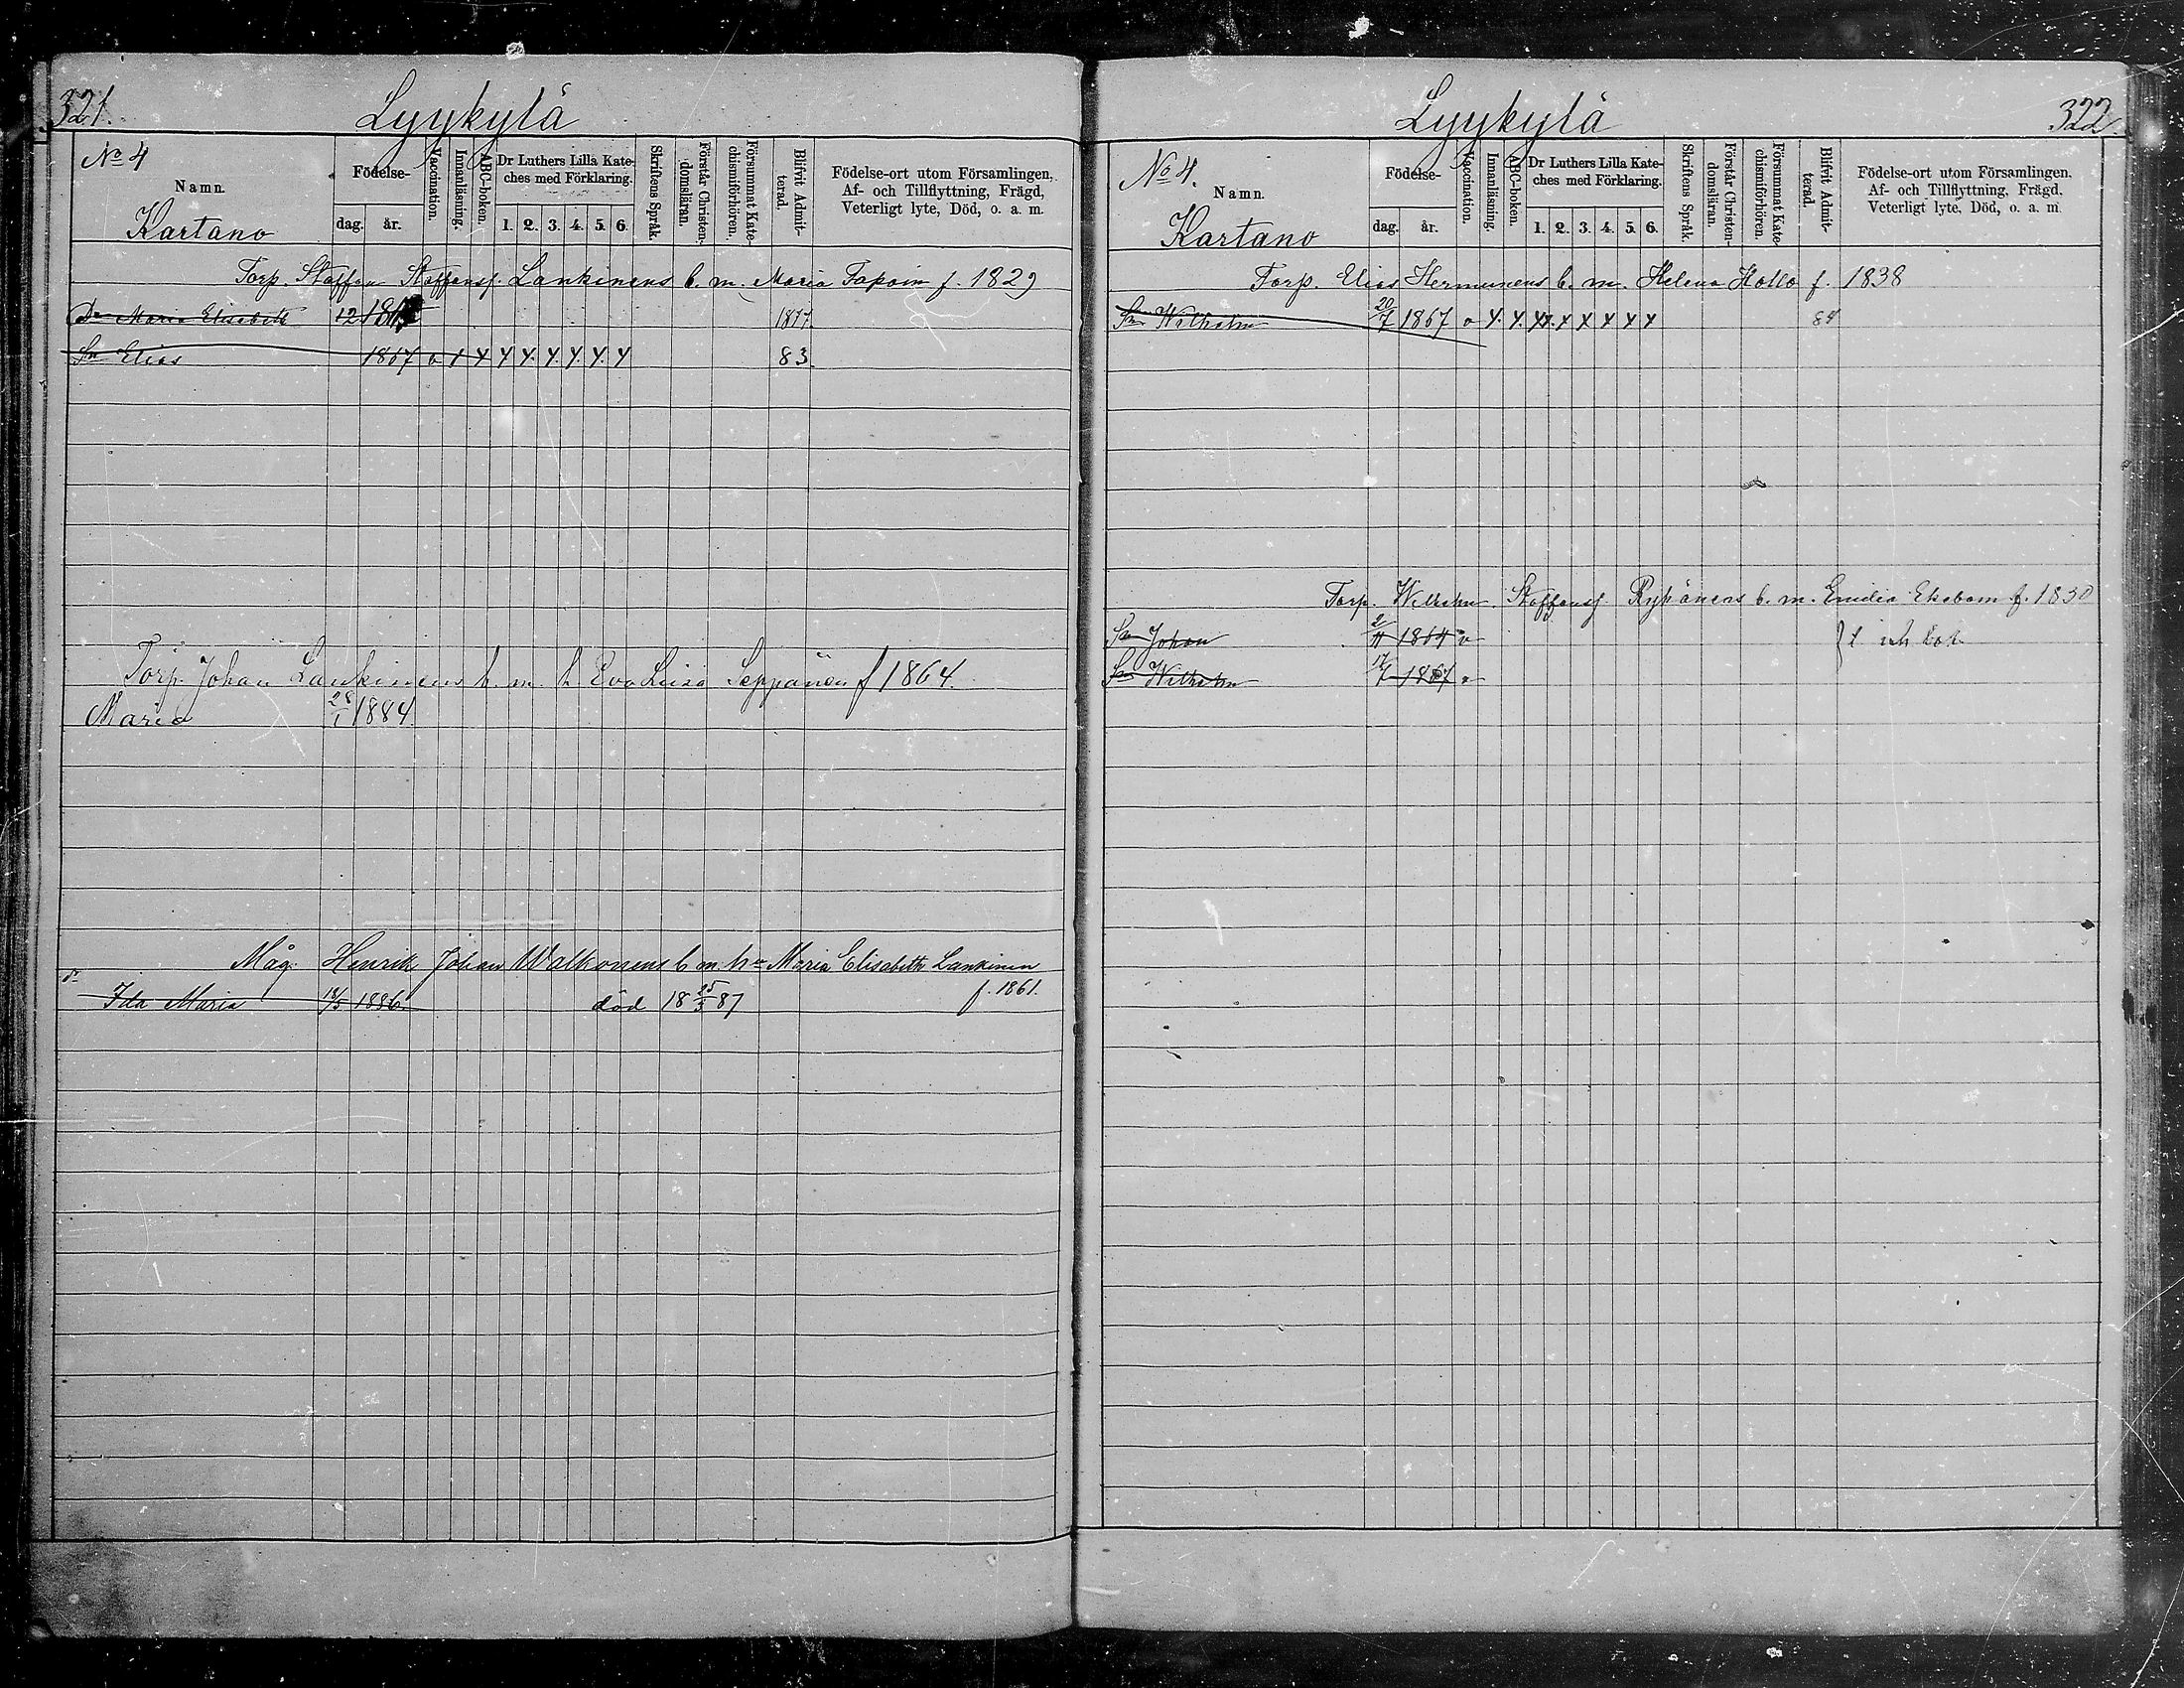 321.
Lyykylä
No 4
Namn.
Kartano
Födelse-
dag. år.
Vaccination.
Innanläsning.
ABC-boken.
Dr Luthers Lilla Kate-
ches med Förklaring.
1. 2. 3. 4. 5. 6.
Skriftens Språk.
Förstår Christen-
domsläran.
Försummat Kate-
chismiförhören.
Blifvit Admit-
terad.
Födelse-ort utom Församlingen,
Af- och Tillflyttning, Frägd,
Veterligt lyte, Död, o. a. m.
Torp. Staffan Staffansf. Lankinens b. m. Maria f. 1829
Dr Maria Elisabeth 12 1877.
Sn Elias 1867 o x x x x x x x x 83.
Torp. Johan Lankinens b. m. h. Eva Luisa Seppänen f 1864.
Maria 28/1 1884
Måg. Henrik Johan Walkonens b m hu Maria Elisabeth Lankinen
f. 1861.
dr Ida Maria 1886. död 18 25/3 87
322
Lyykylä
No 4.
Namn.
Kartano
Födelse-
dag. år.
Vaccination.
Innanläsning.
ABC-boken.
Dr Luthers Lilla Kate-
ches med Förklaring.
1. 2. 3. 4. 5. 6.
Skriftens Språk.
Förstår Christen-
domsläran.
Försummat Kate-
chismiförhören.
Blifvit Admit-
terad.
Födelse-ort utom Församlingen.
Af- och Tillflyttning, Frägd.
Veterligt lyte, Död, o. a. m.
Torp. Elias Hermunens b. m. Helena Hollo f. 1838
Sn Wilhelm 20/7 1867 o x x x x x x x x 84
Torp. Wilhelm Staffansf Rypönens b. m. Emilia Ekebom f. 1830
Sn Johan 2/11 1864 o
Sn Wilhelm 17/7 1867 o